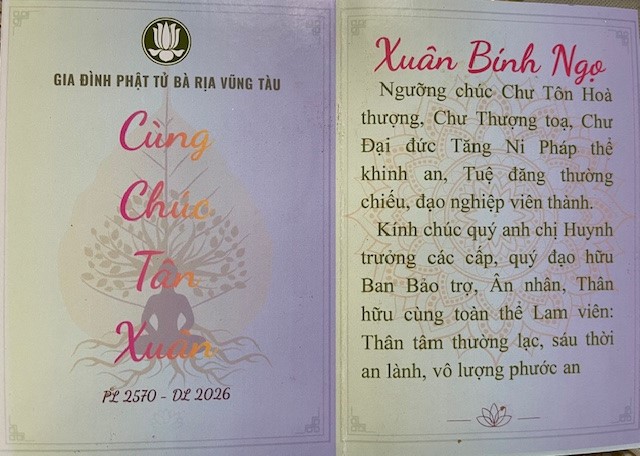 GIA ĐÌNH PHẬT TỬ BÀ RỊA VŨNG TÀU
Cùng
Chúc
Tân
Xuân
PL 2570 - DL 2026
Xuân Bính Ngọ
Ngưỡng chúc Chư Tôn Hoà
thượng, Chư Thượng toạ, Chư
Đại đức Tăng Ni Pháp thể
khinh an, Tuệ đăng thường
chiếu, đạo nghiệp viên thành.
Kính chúc quý anh chị Huynh
trưởng các cấp, quý đạo hữu
Ban Bảo trợ, Ân nhân, Thân
hữu cùng toàn thể Lam viên:
Thân tâm thường lạc, sáu thời
an lành, vô lượng phước an